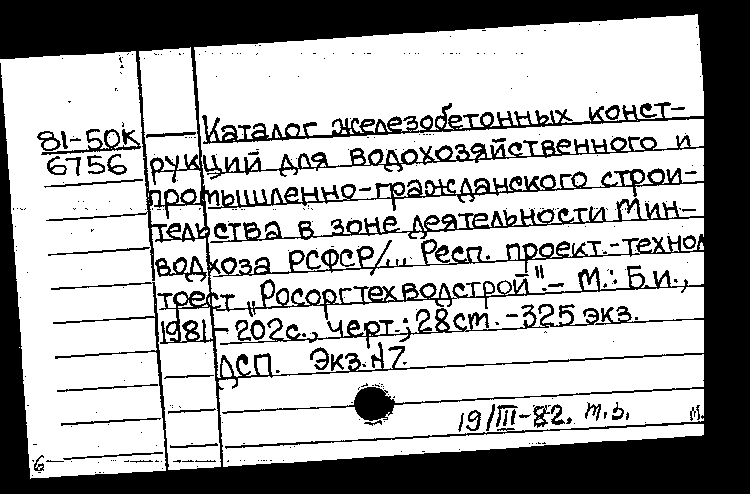 81-50К
6756
Каталог железобетонных конст-
рукций для водохозяйственного и
промышленно-гражданского строи-
тельства в зоне деятельности Мин-
водхоза РСФСР/... Респ. проект.-технол
трест „Росоргтехводстрой".- М.: Б.и.,
1981.-202с., черт.; 28см. -325 экз.
ДСП. Экз.№7.
19/III-82. т.в. м.
6